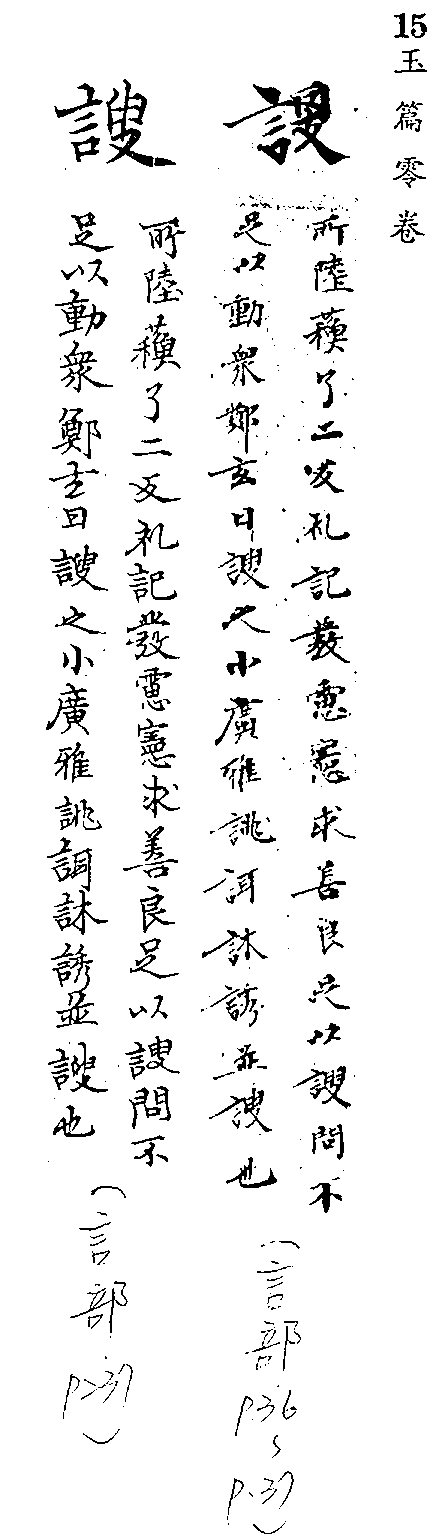 15玉篇零卷
謏
所陸蘋了二反礼記發慮憲求善良足以謏問不
足以動衆鄭玄曰謏之小廣雅誂誀訹誘並謏也
(言部 p.36~p.37)
謏
所陸蘋了二反礼記發慮憲求善良足以謏問不
足以動衆鄭玄曰謏之小廣雅誂誀訹誘並謏也
(言部 p.37)